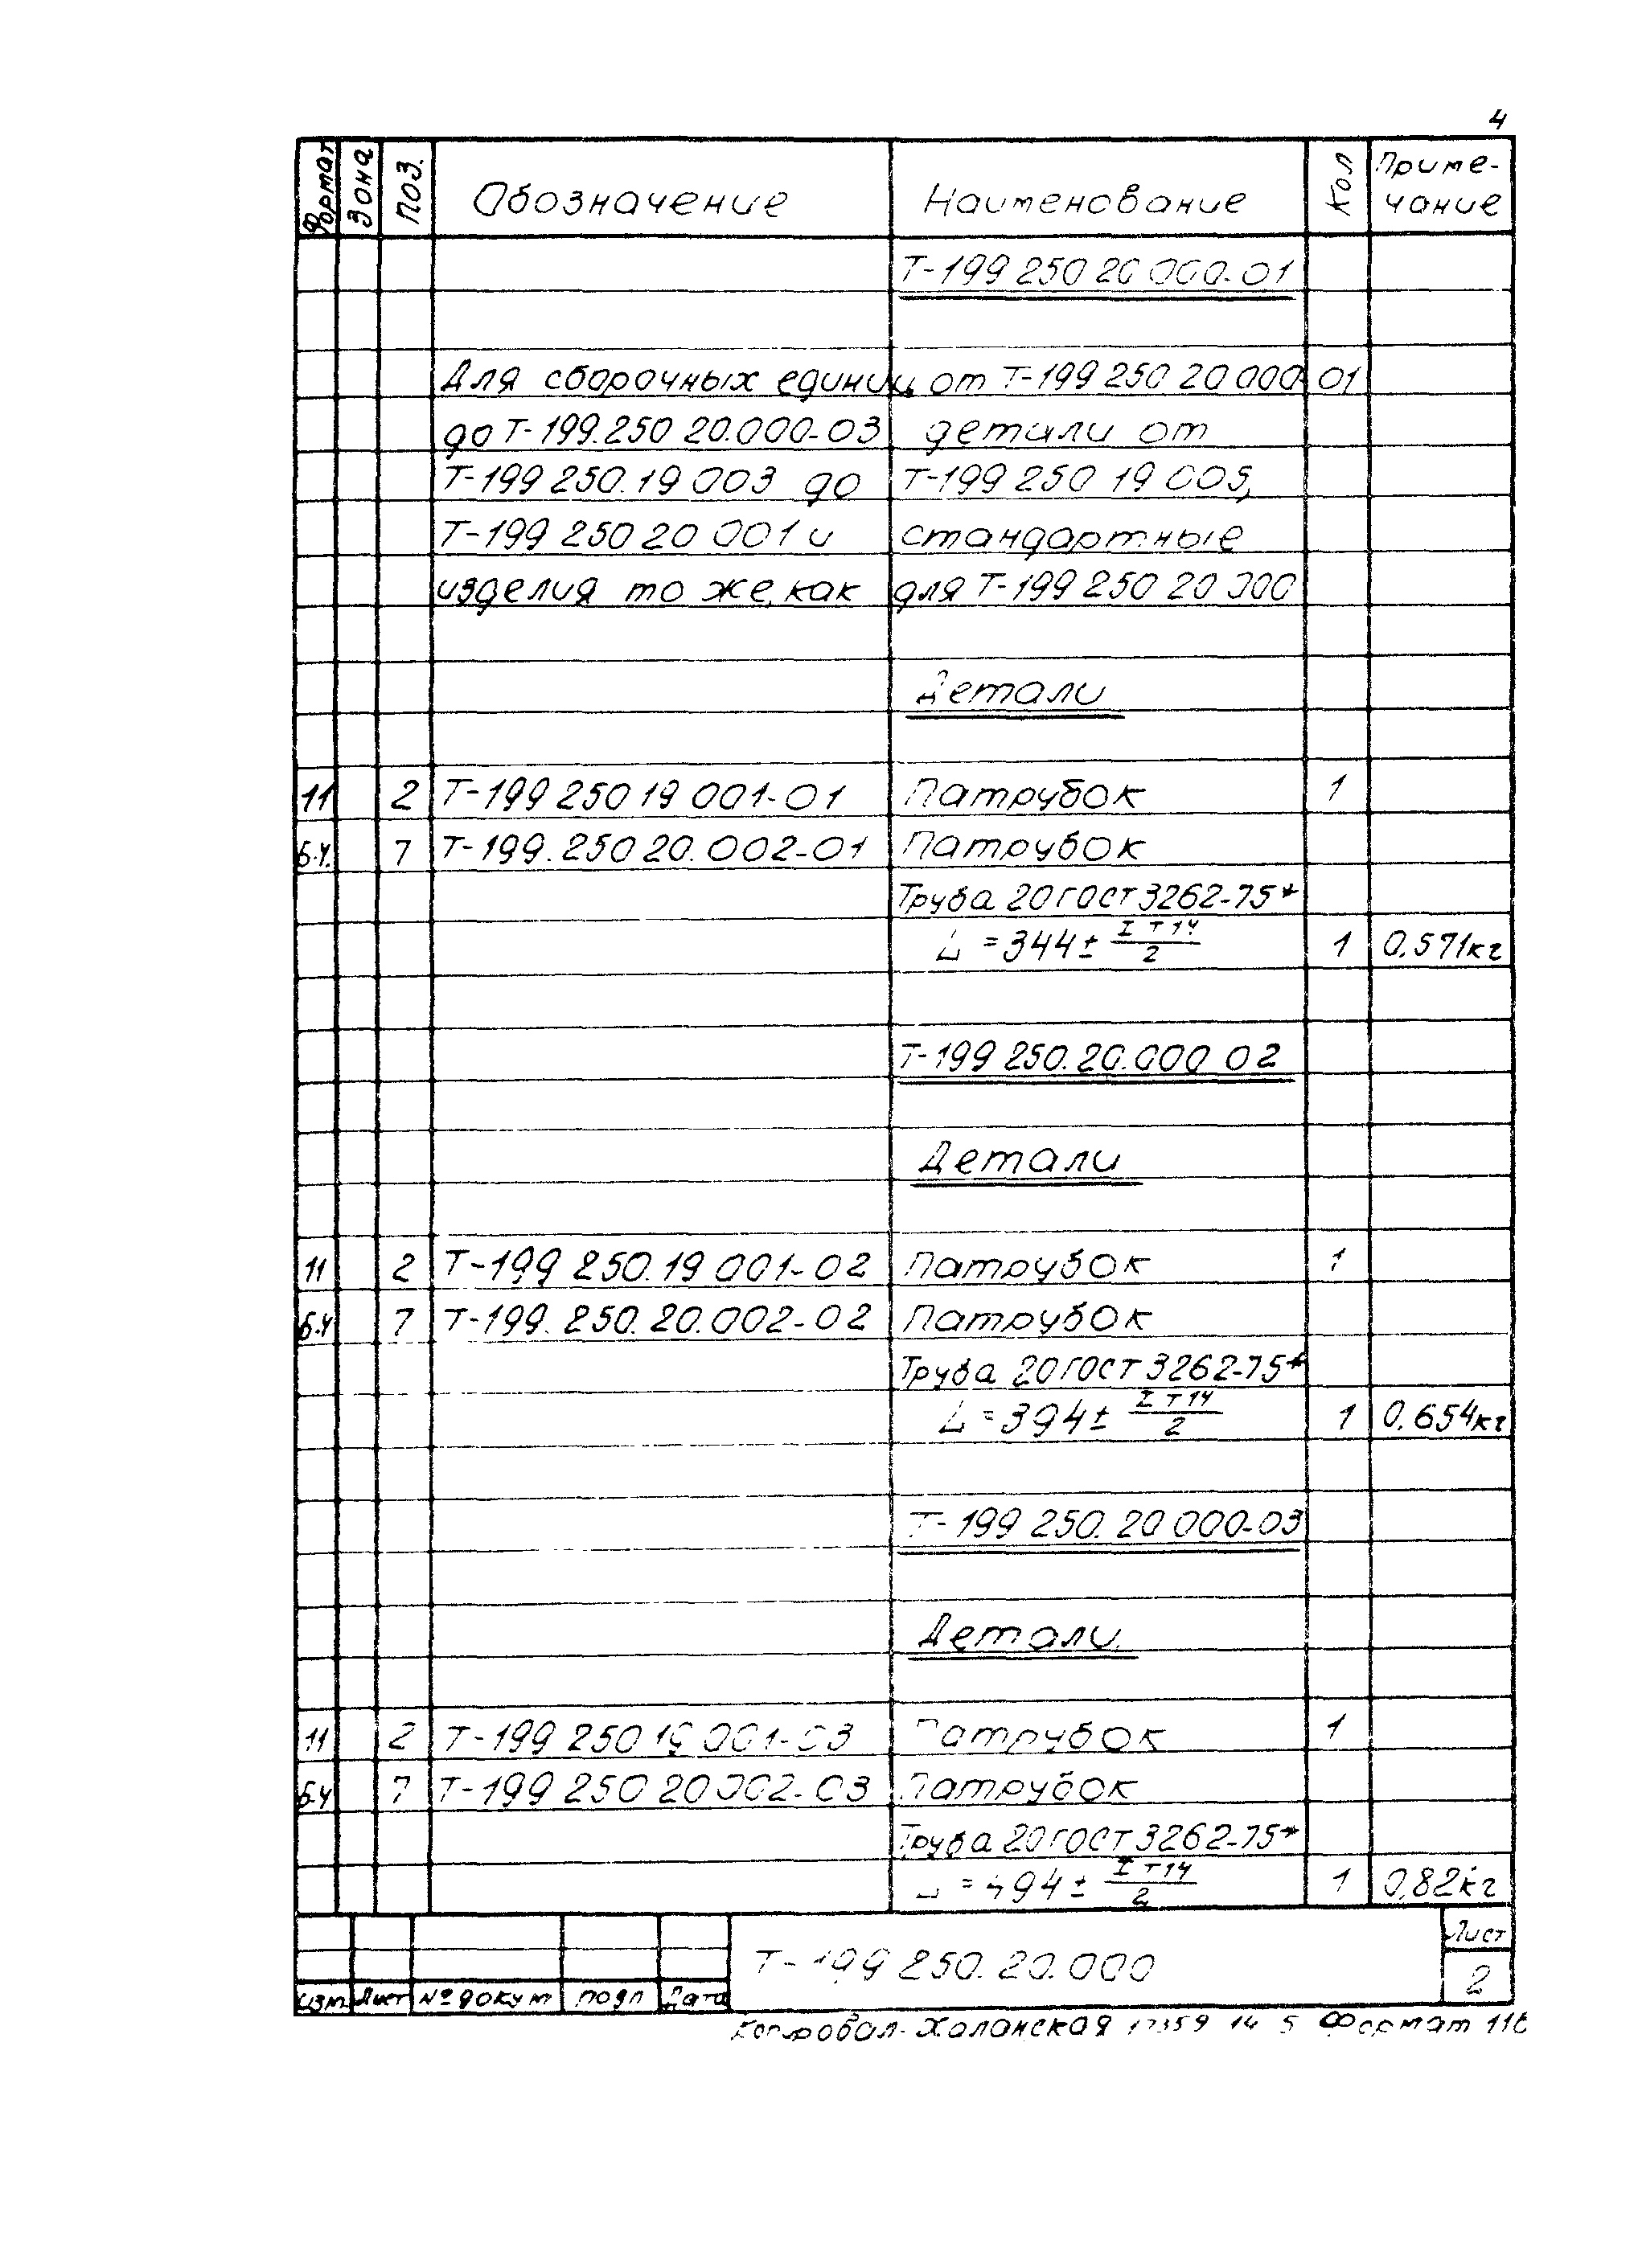 4
Формат Зона Поз. Обозначение Наименование Кол Приме-
чание
Т-199 250 20 000-01
Для сборочных единиц от Т-199 250 20 000-01
до Т-199.250 20.000-03 детали от
Т-199 250.19 003 до Т-199 250 19 005,
Т-199 250 20 001 и стандартные
изделия то же, как для Т-199 250 20 000
Детали
11 2 Т-199 250 19 001-01 Патрубок 1
б.ч. 7 Т-199.250 20.002-01 Патрубок
Труба 20 ГОСТ 3262-75*
L = 344 ± IT14/2 1 0,571кг
Т-199 250.20.000 02
Детали
11 2 Т-199 250.19 001-02 Патрубок 1
б.ч 7 Т-199.250.20.002-02 Патрубок
Труба 20 ГОСТ 3262-75*
L = 394 ± IT14/2 1 0,654кг
Т-199 250.20 000-03
Детали
11 2 Т-199 250 19 001-03 Патрубок 1
б.ч 7 Т-199 250 20 002-03 Патрубок
Труба 20 ГОСТ 3262-75*
L = 494 ± IT14/2 1 0,82кг
Изм Лист № докум подп Дата Т-199 250.20.000 Лист
2
Копировал- Халанская Формат 11